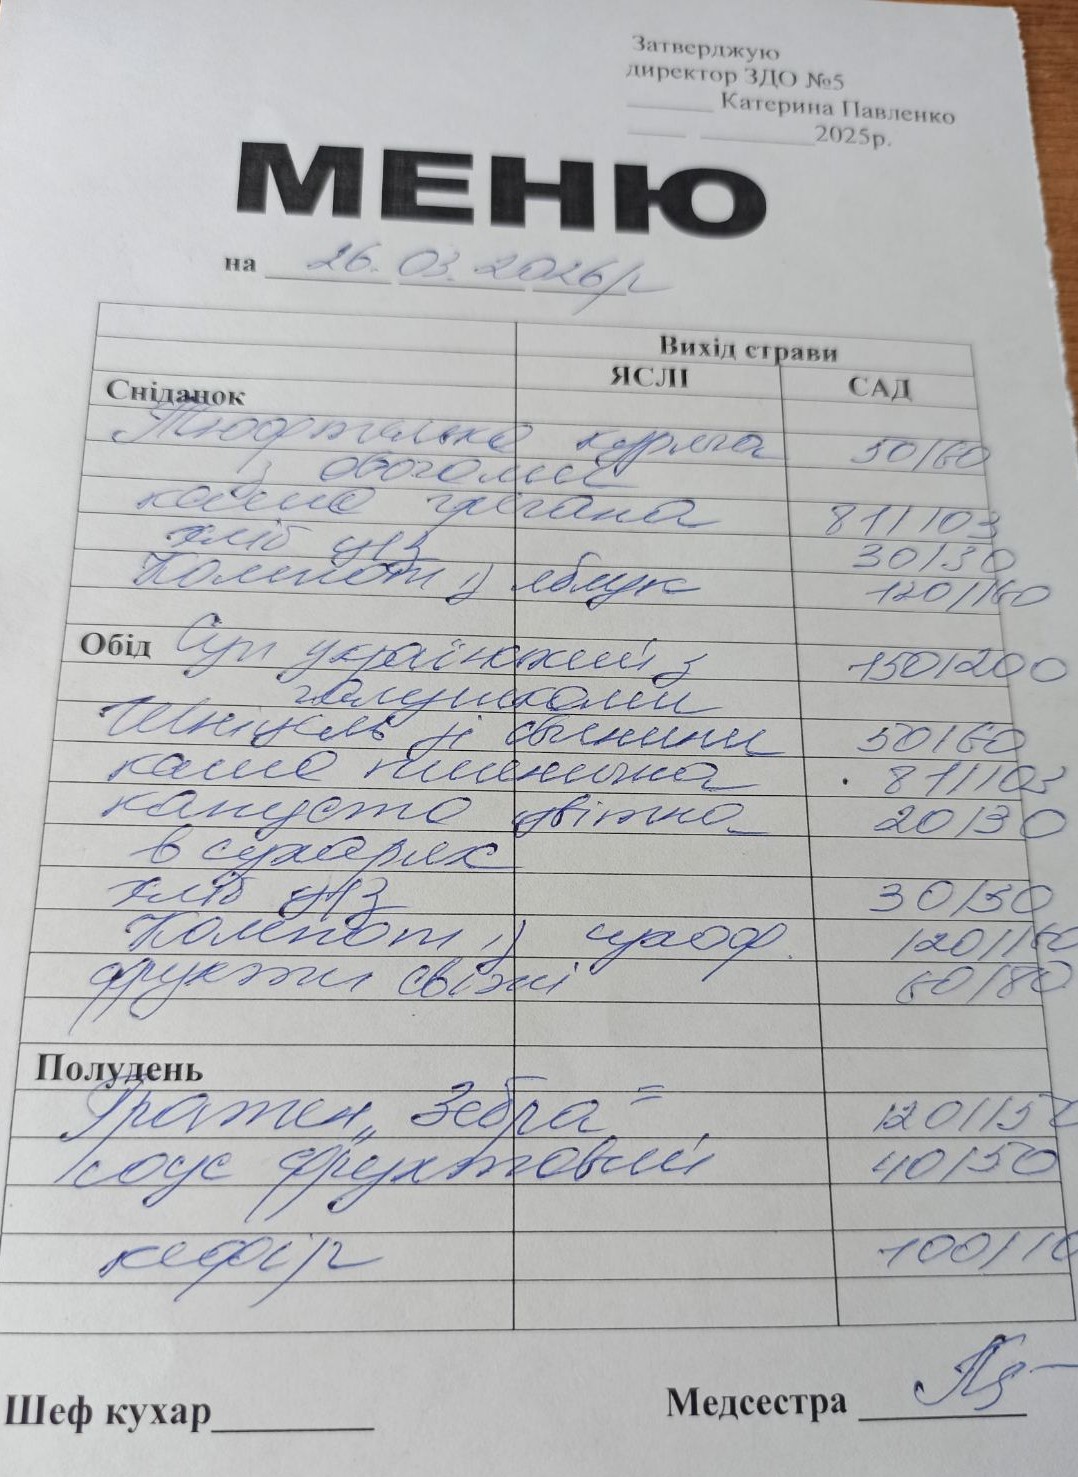 Затверджую
директор ЗДО №5
Катерина Павленко
2025р.
МЕНЮ
на 26. 03. 2026р
Вихід страви
ЯСЛІ САД
Сніданок
Тюфтелька куряча 50/60
з овочами
каша гречана 81/103
хліб ц/з 30/30
Компот із яблук 120/160
Обід Суп український з 150/200
галушками
Шніцель зі свинини 50/60
каша пшенична 81/103
капуста цвітна 20/30
в сухарях
хліб ц/з 30/50
Компот із сухоф. 120/160
фрукти свіжі 60/80
Полудень
"Зебра" 120/15
соус фруктовий 40/50
кефір 100/1
Шеф кухар Медсестра